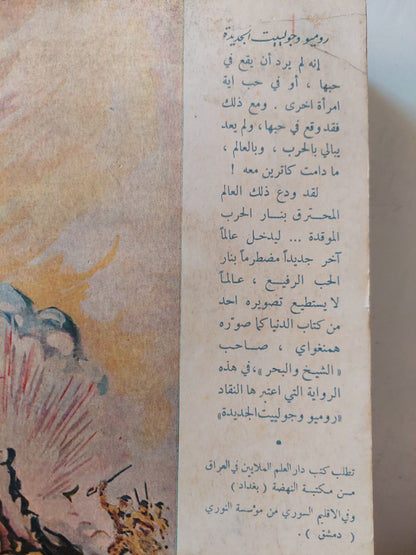 روميو وجولييت الجديدة
إنه لم يرد أن يقع في
حبها ، أو في حب اية
امرأة اخرى . ومع ذلك
فقد وقع في حبها، ولم يعد
يبالي بالحرب ، وبالعالم ،
ما دامت كاترين معه !
لقد ودع ذلك العالم
المحترق بنار الحرب
الموقدة ... ليدخل عالماً
آخر جديداً مضطرماً بنار
الحب الرفيع ، عالماً
لا يستطيع تصويره احد
من كتاب الدنيا كما صوّره
همنغواي ، صاحب
« الشيخ والبحر » ، في هذه
الرواية التي اعتبرها النقاد
«روميو وجولييت الجديدة»
تطلب كتب دار العلم للملايين في العراق
من مكتبة النهضة ( بغداد )
وفي الاقليم السوري من مؤسسة النوري
( دمشق ) .